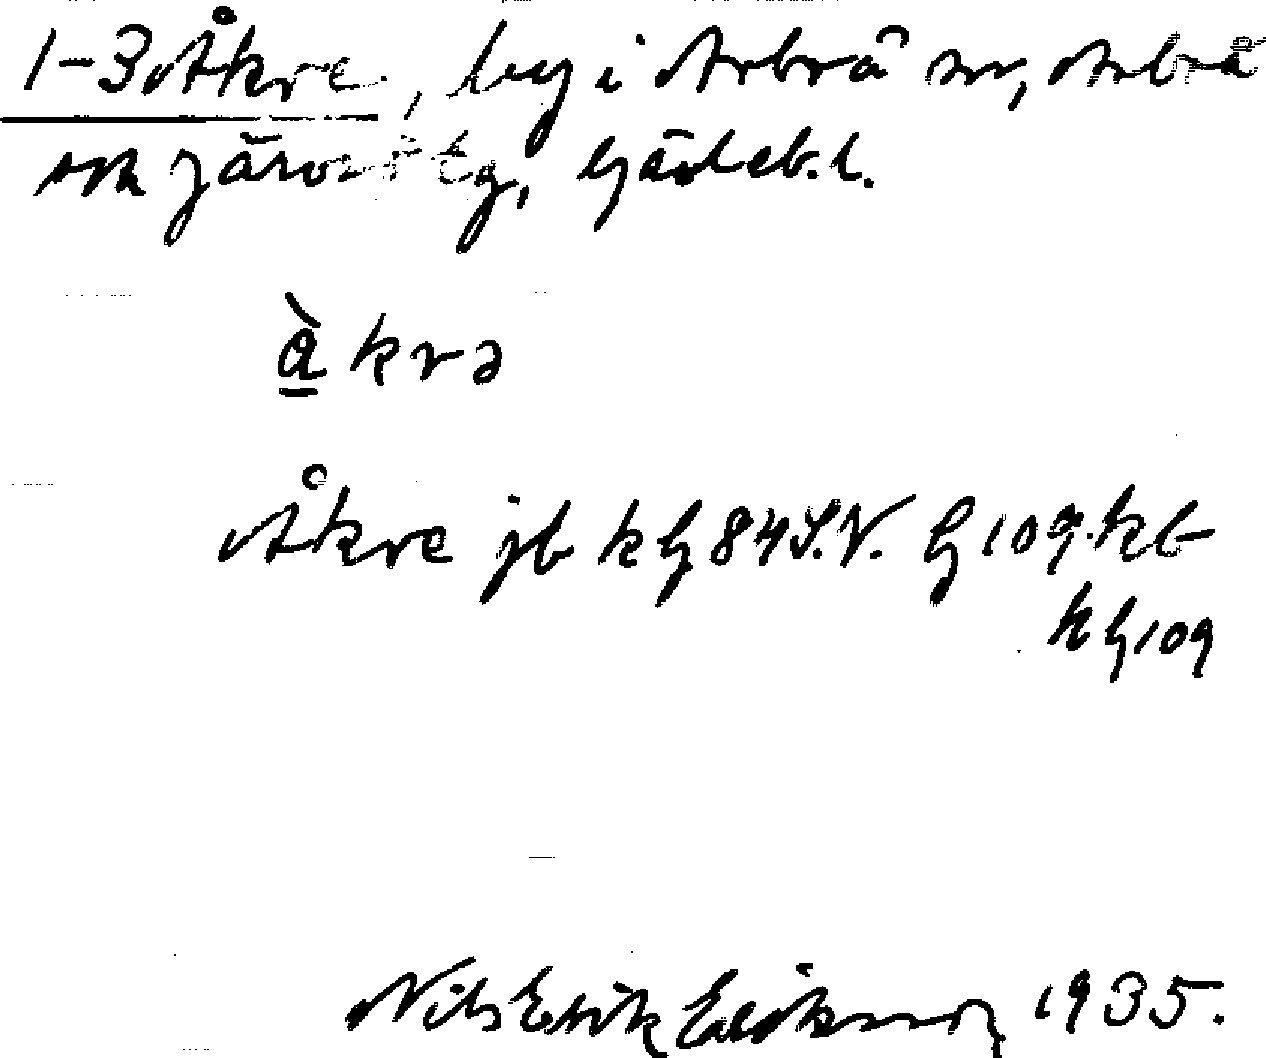 1-3 Åkre, by i Arbrå sn, Arbrå
och Järvsö tg, Gävleb. l.
å̀krə
Åkre jb k G 84 S.V. G 109. kb
k G 109
Nils Erik Erikson 1935.